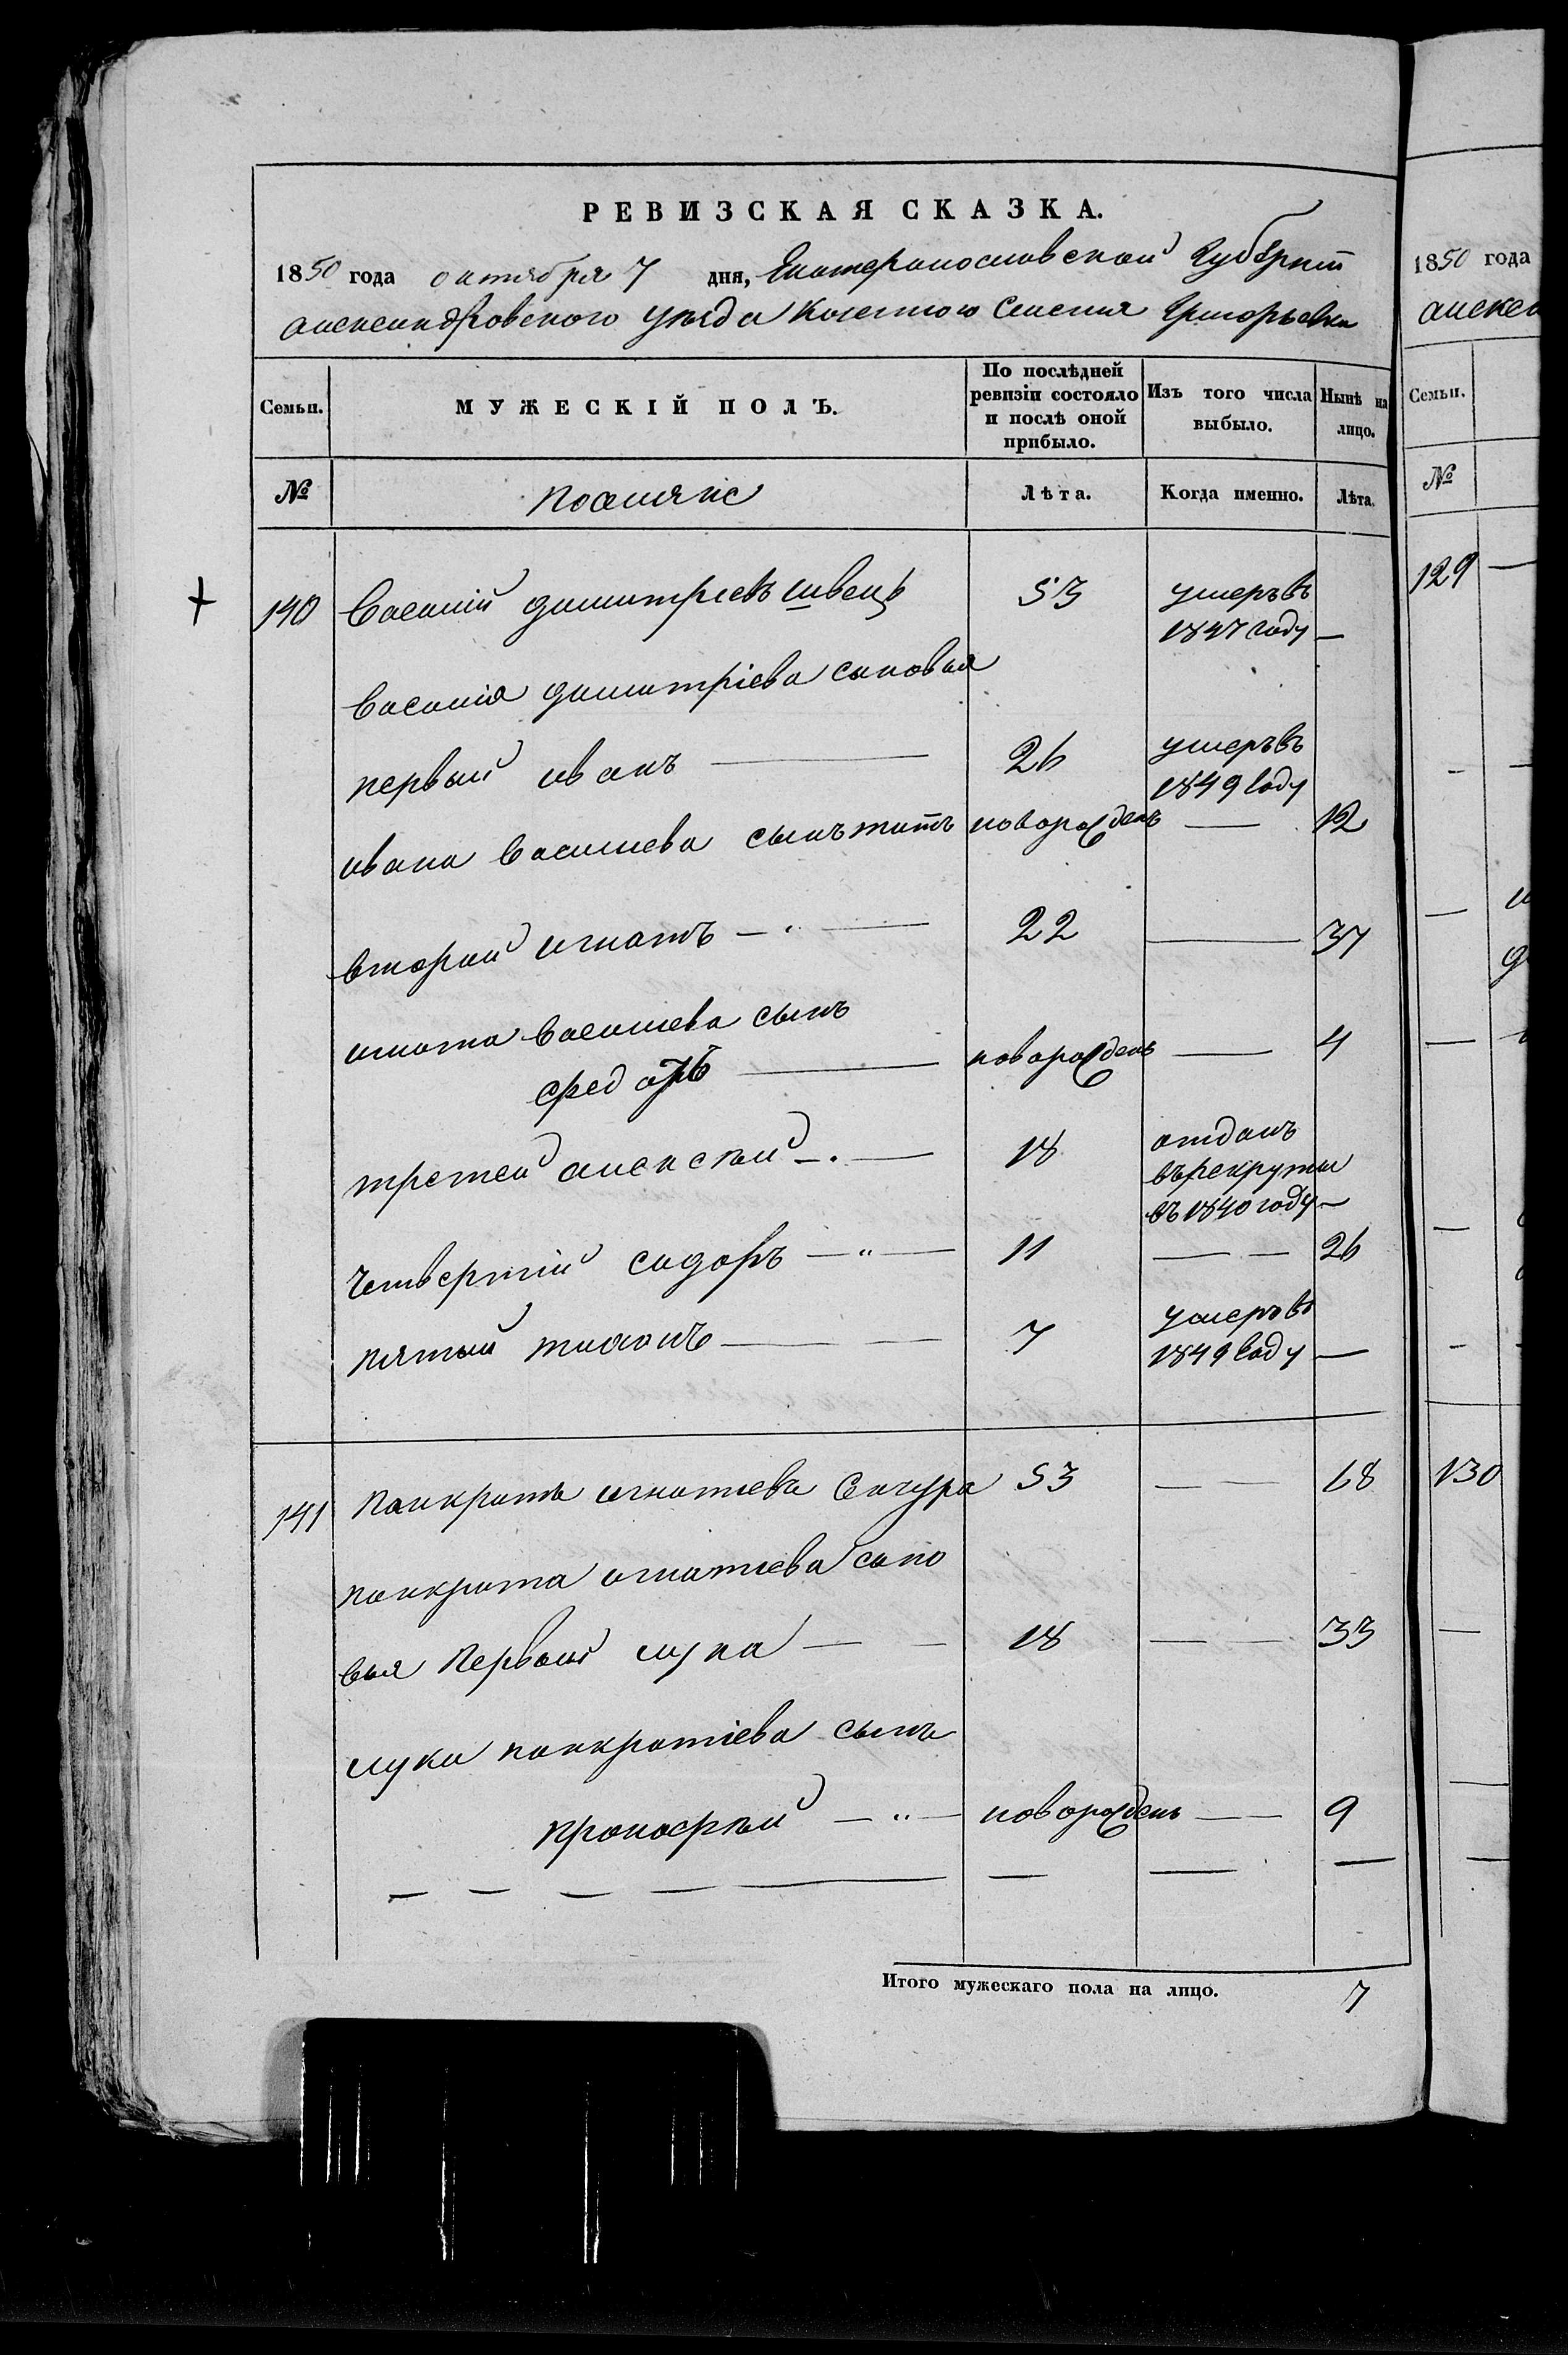 РЕВИЗСКАЯ СКАЗКА.
1850 года октября 7 дня, Екатеринославской Губернiи
Александровского уезда Казенного Селения Григорьевки
Семьи. МУЖЕСКІЙ ПОЛЪ. По послѣдней ревизіи состояло и послѣ оной прибыло. Изъ того числа выбыло. Нынѣ на лицо.
№ Поселяне Лѣта. Когда именно. Лѣта.
140 Василій Димитриевъ Швецъ 53 умеръ въ
1847 году —
Василія Димитріева сыновья
первый Иванъ — 26 умеръ въ
1849 году
Ивана Васильева сынъ Титъ новорожденъ — 12
вторый Игнатъ — 22 — 37
Игната Васильева сынъ
Федоръ — новорожденъ — 4
третей Алексей — 18 отданъ
въ рекруты
въ 1840 году —
Четвертый Сидоръ — 11 — 26
пятый Тихонъ — 7 умеръ въ
1849 году —
141 Панкратъ Игнатиевъ 53 — 68
Панкрата Игнатиева сыно
вья Первый Лука — 18 — 33
Луки Панкратіева сынъ
Прокофей — новорожденъ — 9
Итого мужескаго пола на лицо. 7
1850 года
Алексан
Семьи.
№
129
130